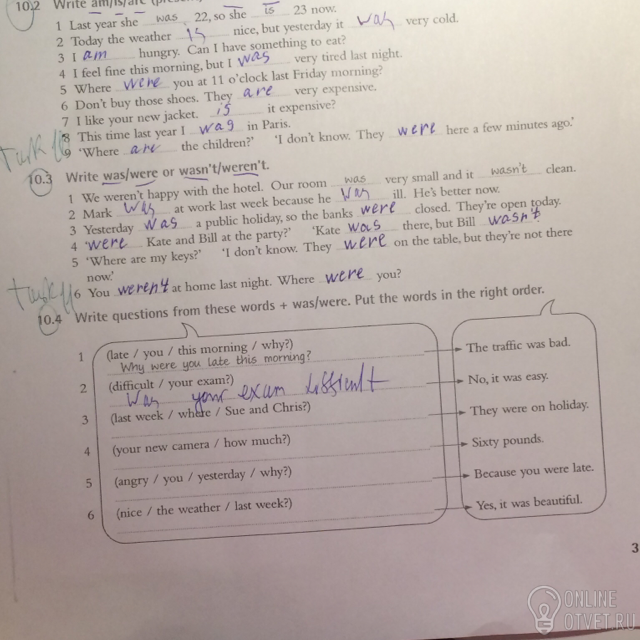 10.2 Write am/is/are
1 Last year she was 22, so she is 23 now.
2 Today the weather is nice, but yesterday it was very cold.
3 I am hungry. Can I have something to eat?
4 I feel fine this morning, but I was very tired last night.
5 Where were you at 11 o'clock last Friday morning?
6 Don't buy those shoes. They are very expensive.
7 I like your new jacket. is it expensive?
8 This time last year I was in Paris.
9 'Where are the children?' 'I don't know. They were here a few minutes ago.'
10.3 Write was/were or wasn't/weren't.
1 We weren't happy with the hotel. Our room was very small and it wasn't clean.
2 Mark was at work last week because he was ill. He's better now.
3 Yesterday was a public holiday, so the banks were closed. They're open today.
4 'were Kate and Bill at the party?' 'Kate was there, but Bill wasn't
5 'Where are my keys?' 'I don't know. They were on the table, but they're not there
now.'
6 You weren't at home last night. Where were you?
10.4 Write questions from these words + was/were. Put the words in the right order.
1 (late / you / this morning / why?)
Why were you late this morning?
The traffic was bad.
2 (difficult / your exam?)
Was your exam difficult
No, it was easy.
3 (last week / where / Sue and Chris?)
They were on holiday.
4 (your new camera / how much?)
Sixty pounds.
5 (angry / you / yesterday / why?)
Because you were late.
6 (nice / the weather / last week?)
Yes, it was beautiful.
3
ONLINE
OTVET.RU